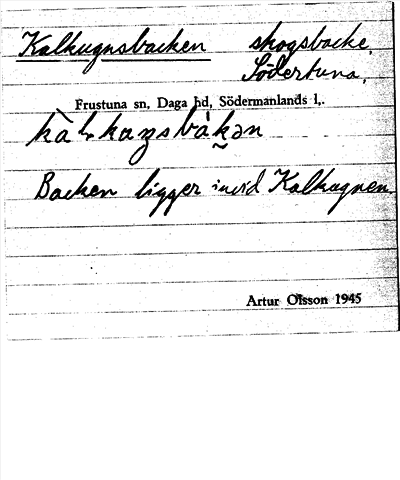 Kalkugnsbacken skogsbacke,
Södertuna,
Frustuna sn, Daga hd, Södermanlands l,.
Backen ligger invid Kalkugnen.
Artur Olsson 1945